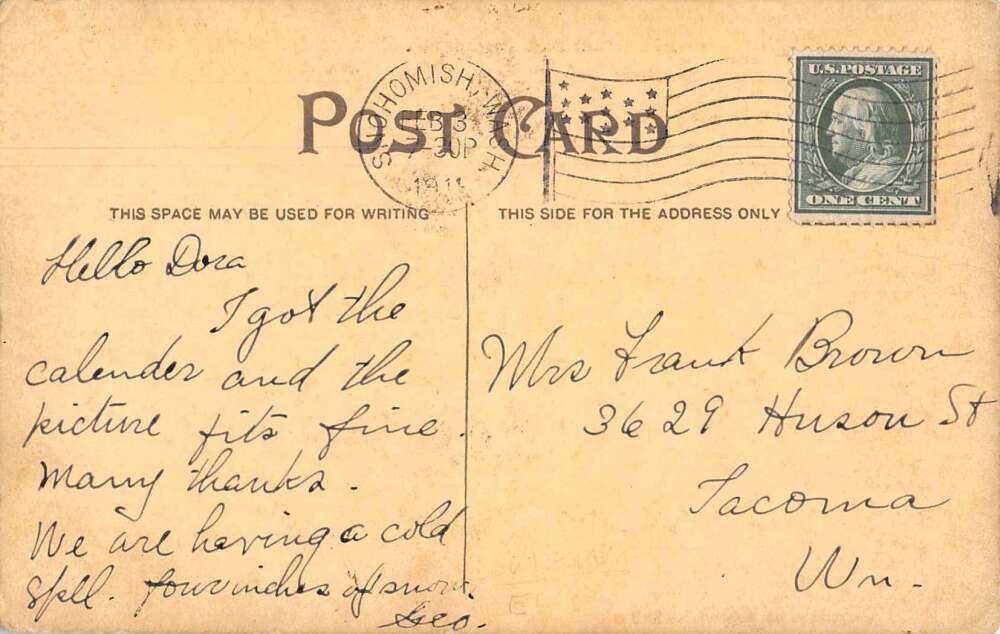 POST CARD
SNOHOMISH, WASH.
FEB 3
7-30P
1911
U.S. POSTAGE
ONE CENT
THIS SPACE MAY BE USED FOR WRITING
THIS SIDE FOR THE ADDRESS ONLY
Hello Dora
I got the
calender and the
picture fits fine.
Many thanks.
We are having a cold
spell. four inches of snow.
Geo.
Mrs Frank Brown
3629 Huson St
Tacoma
Wn.